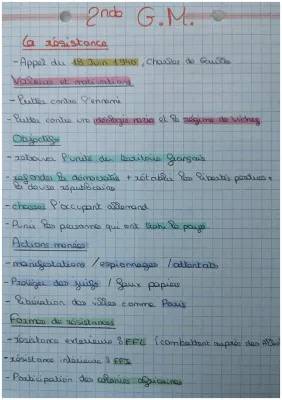 2nde G.M.
La résistance
- Appel du 18 Juin 1940, Charles de Gaulle
Valeurs et motivations
- Luttes contre l'ennemi
- Luttes contre une idéologie nazie et le régime de Vichy
Objectifs
- retrouver l'unité du territoire français
- refonder la démocratie + rétablir les libertés perdues +
la devise républicaine
- chasser l'occupant allemand
- Punir les personnes qui ont trahi le pays
Actions menées
- manifestations / espionnages / attentats
- Protéger des juifs / faux papiers
- Libération des villes comme Paris
Formes de résistances
- résistance extérieure : FFL (combattent auprès des
- résistance intérieure : FFI
- Participation des colonies africaines